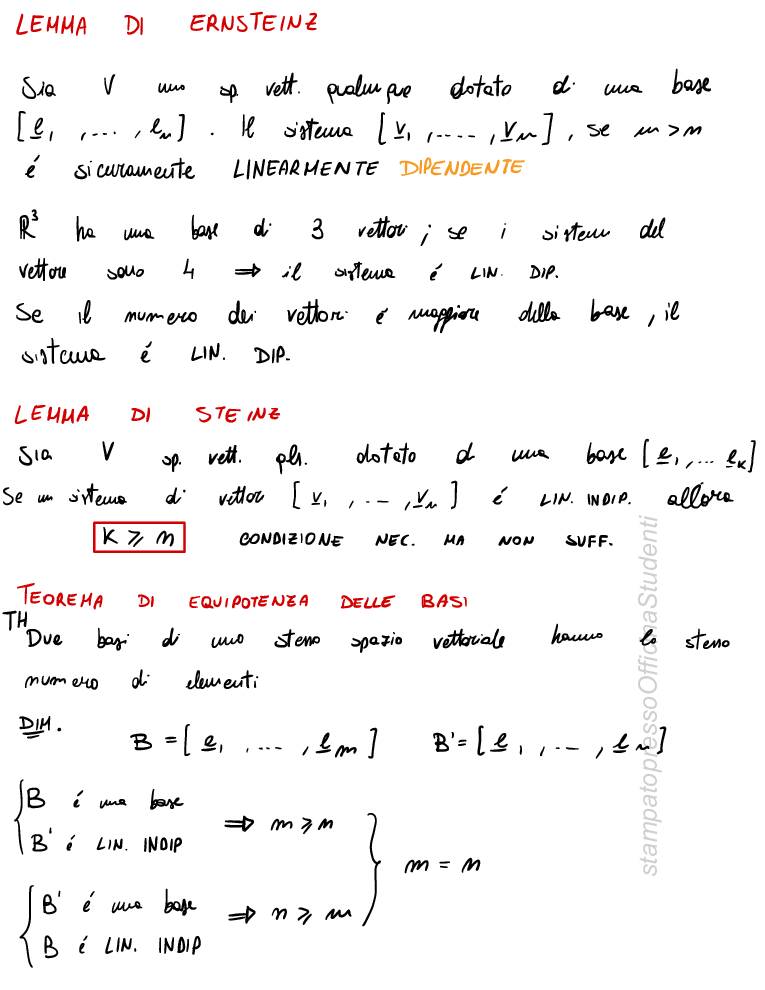 LEMMA DI ERNSTEINZ
Sia V uno sp vett. qualunque dotato di una base
[e1, ...., en]. Il sistema [v1, ...., vm], se m > n
é sicuramente LINEARMENTE DIPENDENTE
R³ ha una base di 3 vettori; se i sistemi del
vettore sono 4 ⇒ il sistema é LIN. DIP.
Se il numero dei vettori é maggiore della base, il
sistema é LIN. DIP.
LEMMA DI STEINZ
Sia V sp. vett. dotato d una base [e1, ... ek]
Se un sistema di vettor [v1, .--, vn] é LIN. INDIP. allora
K ⩾ n CONDIZIONE NEC. MA NON SUFF.
TEOREMA DI EQUIPOTENZA DELLE BASI
TH
Due basi di uno stesso spazio vettoriale hanno lo stesso
numero di elementi
DIM. B = [e1, ...., em] B' = [e1, .--, en]
B é una base
B' é LIN. INDIP ⇒ m ⩾ n
m = n
B' é una base
B é LIN. INDIP ⇒ n ⩾ m
stampatopressoOfficinaStudenti